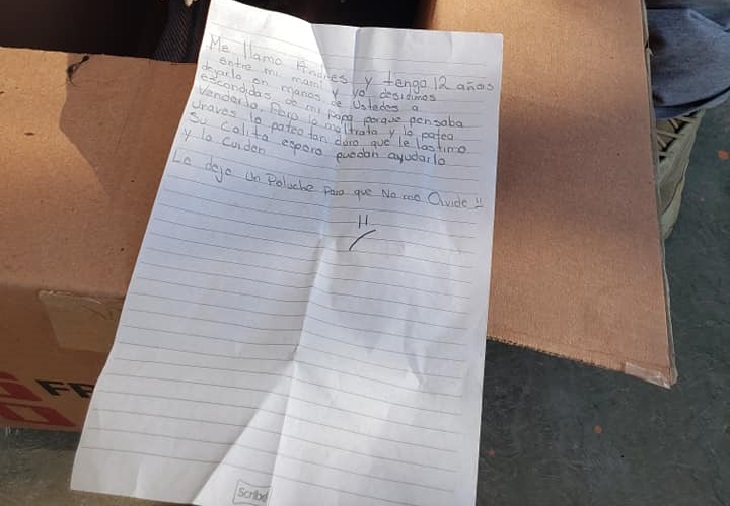 Me llamo Andres y tengo 12 años
entre mi mami y yo desidimos
dejarlo en manos de ustedes a
escondidas de mi papa porque pensaba
venderlo. Pero lo maltrata y lo patea
unaves lo pateo tan duro que le lastimo
su Colita espero puedan ayudarlo
y lo cuiden
Le dejo un Peluche para que No me Olvide !!
Scribe
FR